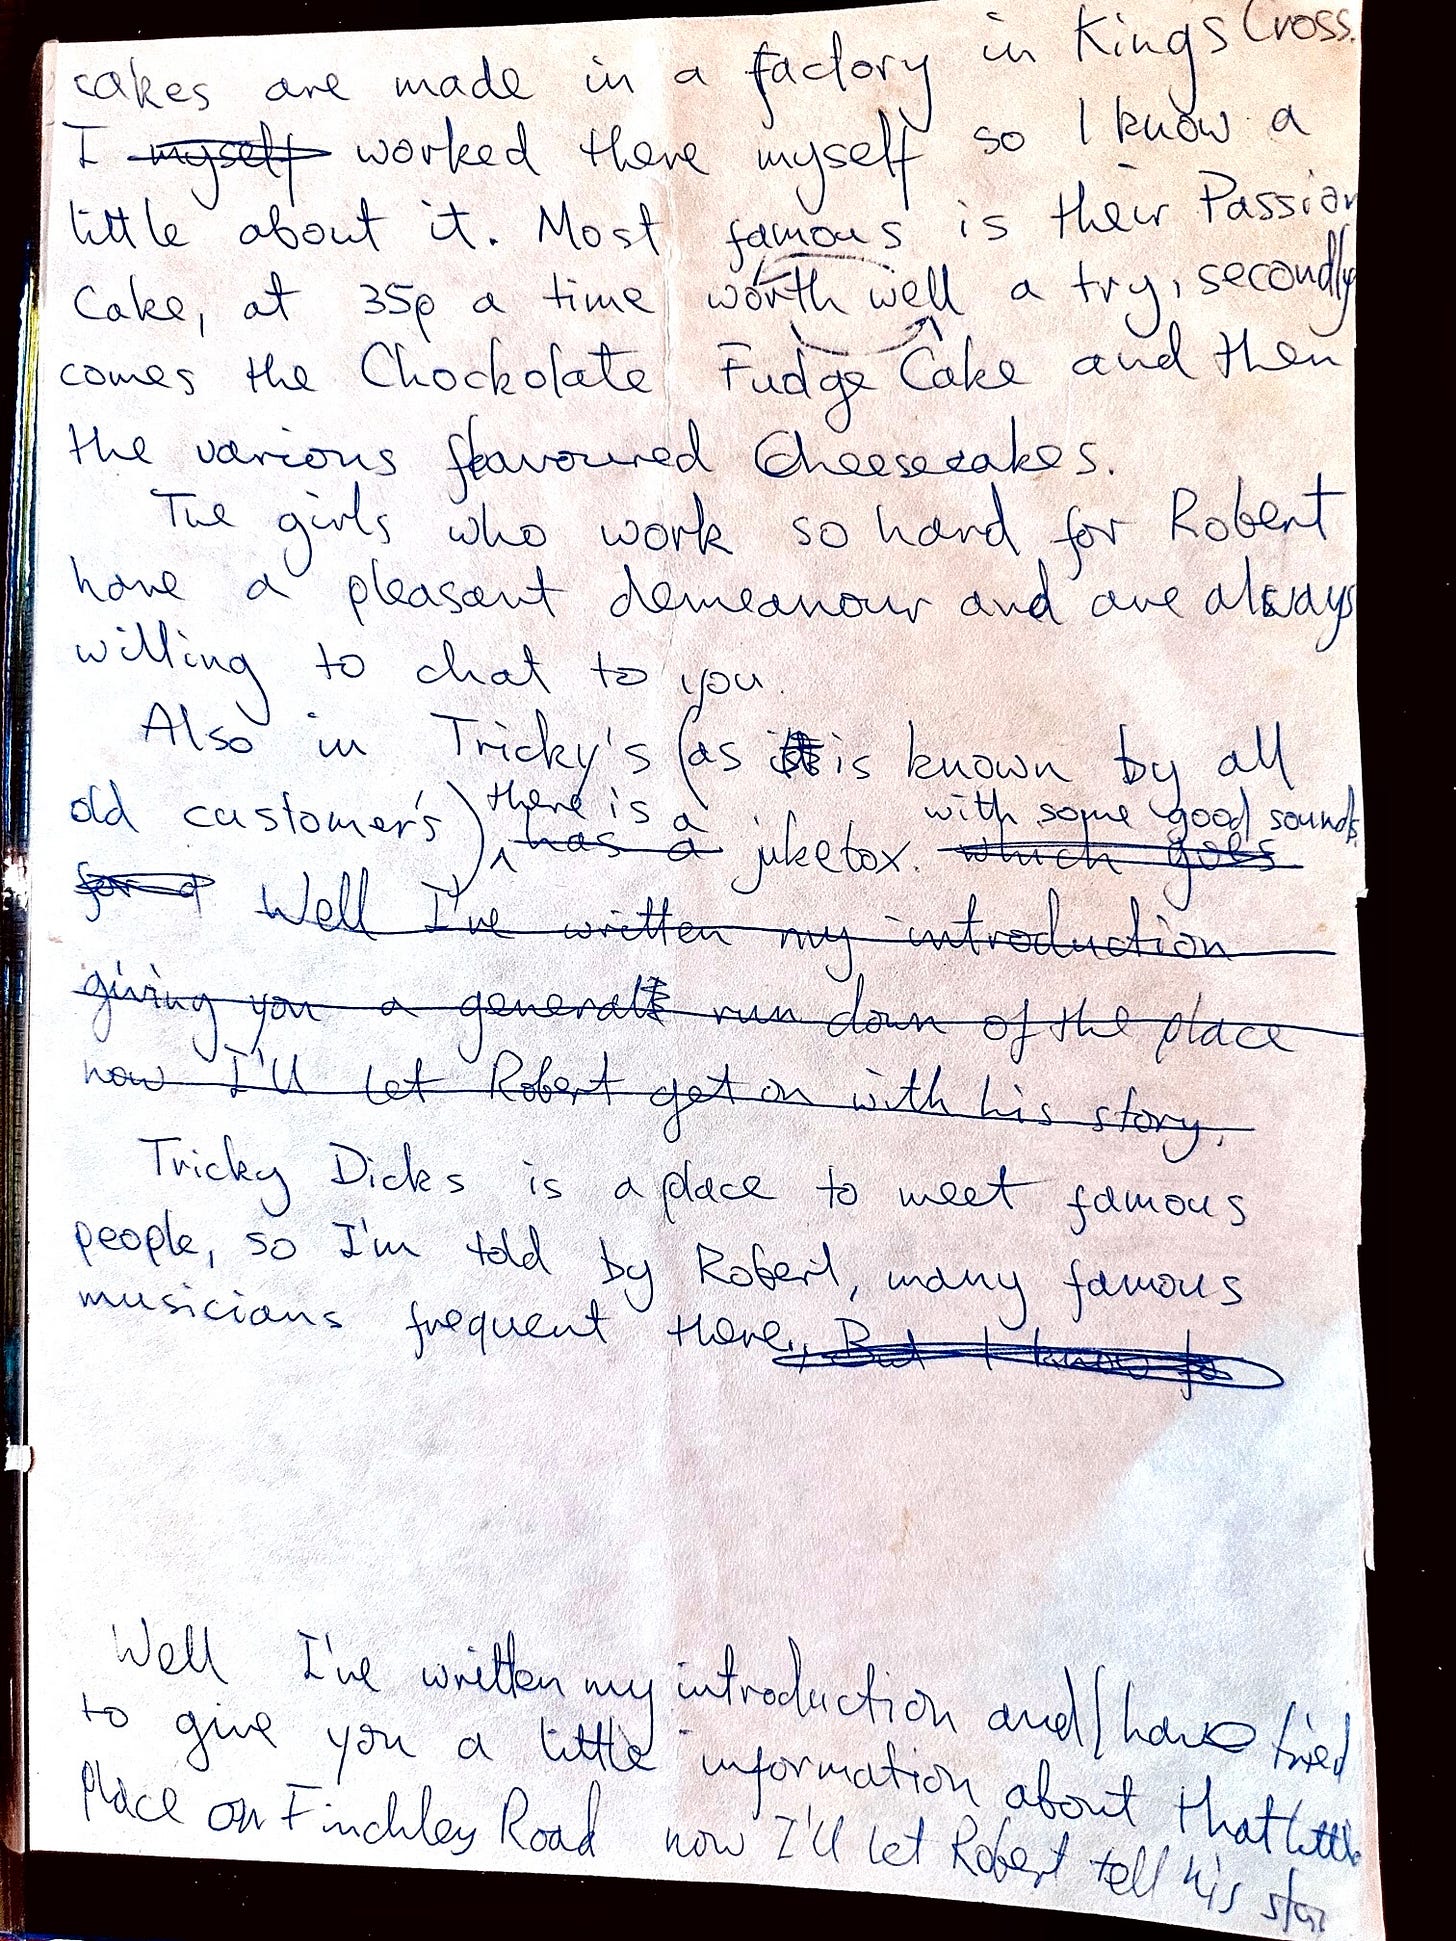 cakes are made in a factory in Kings Cross.
I myself worked there myself so I know a
little about it. Most famous is their Passion
Cake, at 35p a time worth well a try, secondly
comes the Chockolate Fudge Cake and then
the various flavoured Cheesecakes.
The girls who work so hard for Robert
have a pleasant demeanour and are always
willing to chat to you.
Also in Tricky's (as it is known by all
there is a with some good sounds
old customer's) has a jukebox. which goes
for a Well I've written my introduction
giving you a general run down of the place
now I'll let Robert get on with his story.
Tricky Dicks is a place to meet famous
people, so I'm told by Robert, many famous
musicians frequent there, But I know to
Well I've written my introduction and I have tried
to give you a little information about that little
place on Finchley Road now I'll let Robert tell his